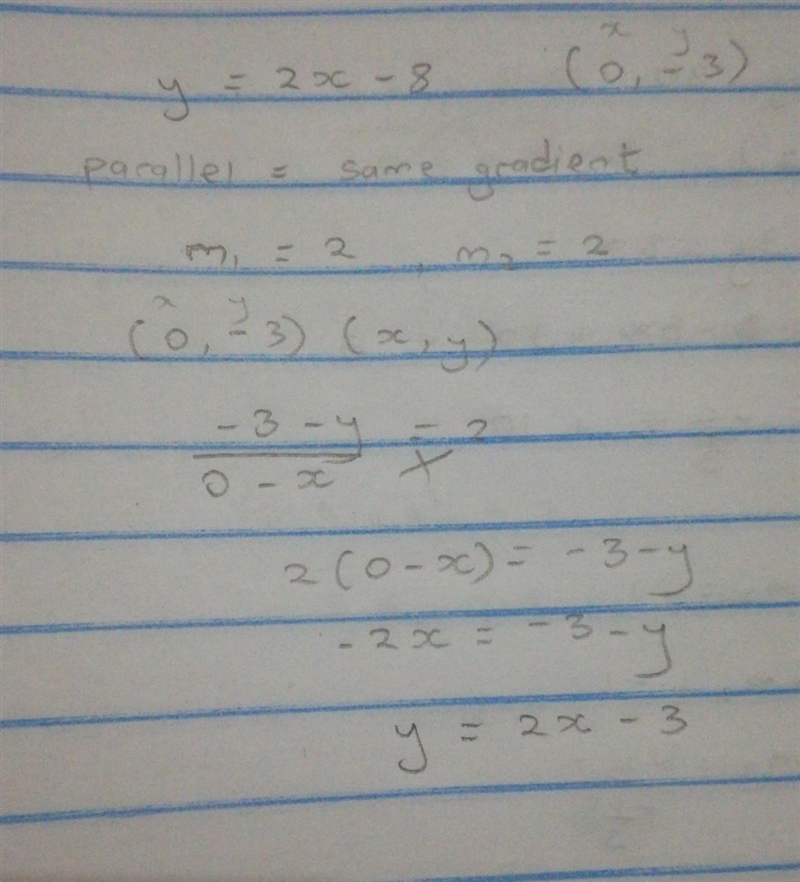 x y
y = 2x - 8 (0, -3)
parallel = same gradient
m₁ = 2 , m₂ = 2
x y
(0, -3) (x, y)
-3 - y = 2
0 - x
2(0 - x) = -3 - y
-2x = -3 - y
y = 2x - 3